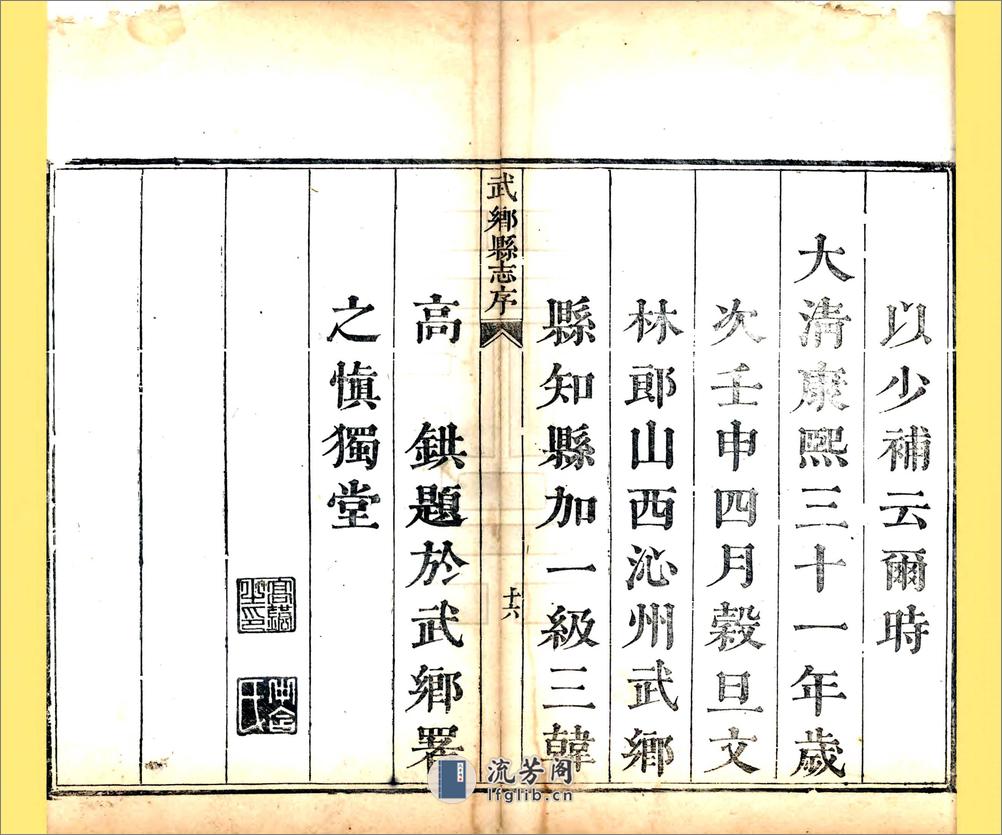 以少補云爾時
大清康熙三十一年歲
次壬申四月穀旦文
林郎山西沁州武鄉
縣知縣加一級三韓
武鄉縣志序
十六
高 鉷題於武鄉署
之愼獨堂
流芳阁
lfglib.cn